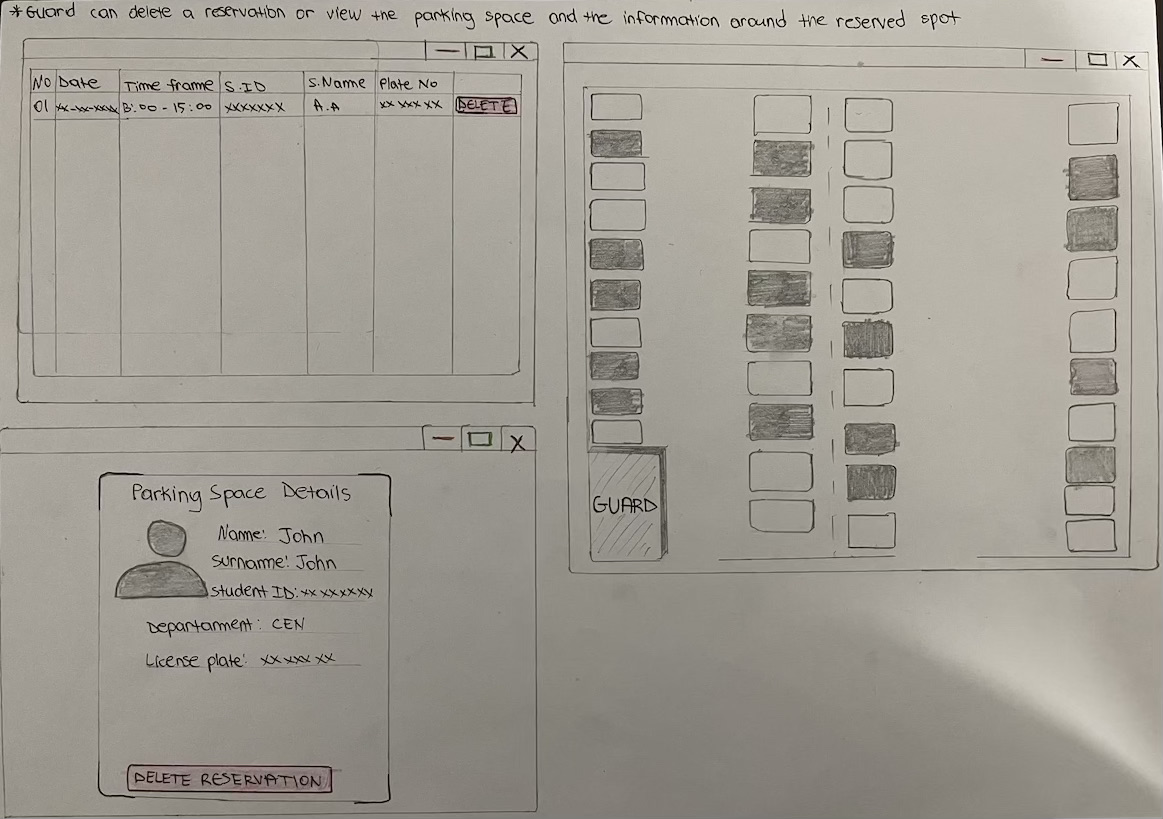 *Guard can delete a reservation or view the parking space and the information around the reserved spot
No Date Time frame S.ID S.Name Plate No
01 xx-xx-xxxx 8:00 - 15:00 xxxxxxx A.A xx xxx xx DELETE
Parking Space Details
Name: John
Surname: John
Student ID: xx xxxxxx
Departanment: CEN
License plate: xx xxx xx
DELETE RESERVATION
GUARD